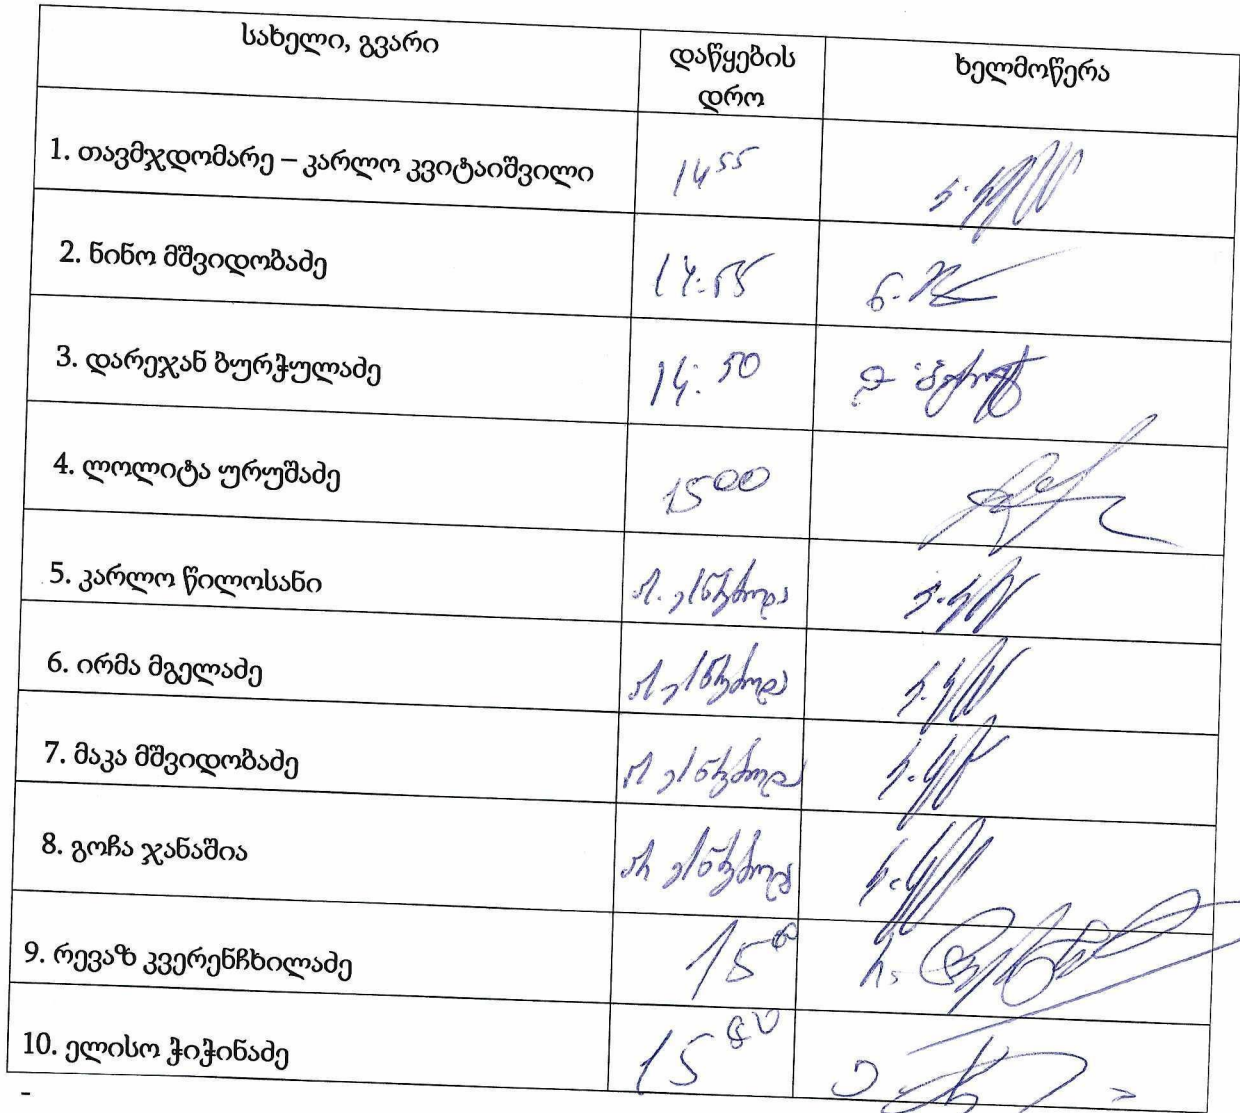 სახელი, გვარი
დაწყების
დრო
ხელმოწერა
1. თავმჯდომარე – კარლო კვიტაიშვილი
14 55
2. ნინო მშვიდობაძე
14:55
3. დარეჯან ბურჭულაძე
14:50
4. ლოლიტა ურუშაძე
15 00
5. კარლო წილოსანი
არ ესწრებოდა
6. ირმა მგელაძე
არ ესწრებოდა
7. მაკა მშვიდობაძე
არ ესწრებოდა
8. გოჩა ჯანაშია
არ ესწრებოდა
9. რევაზ კვერენჩხილაძე
15
10. ელისო ჭიჭინაძე
15
-